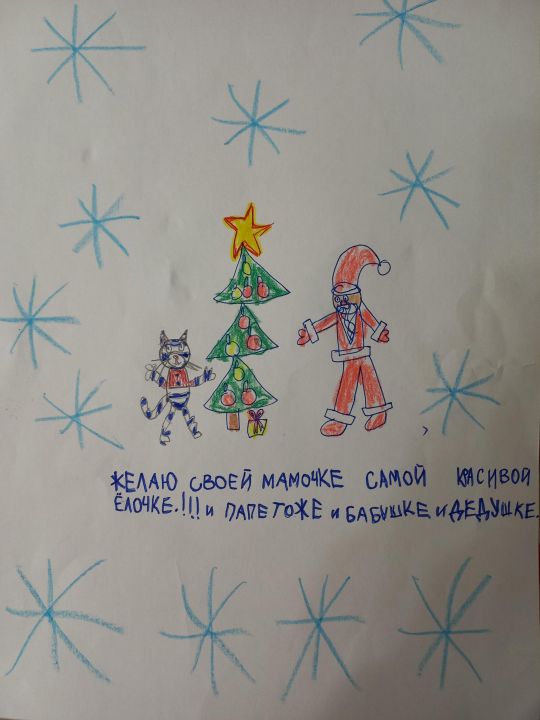 ЖЕЛАЮ СВОЕЙ МАМОЧКЕ САМОЙ КРАСИВОЙ
ЁЛОЧКЕ.!!! И ПАПЕ ТОЖЕ И БАБУШКЕ И ДЕДУШКЕ.